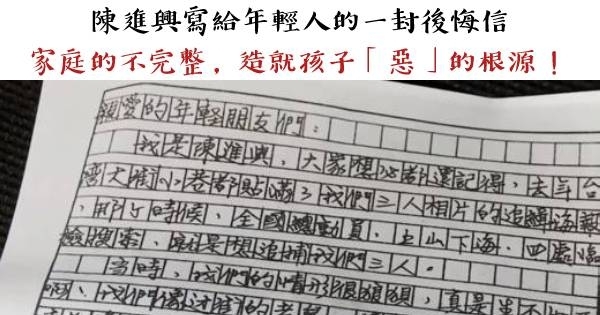 陳進興寫給年輕人的一封後悔信
家庭的不完整，造就孩子「惡」的根源！
親愛的年輕朋友們：
我是陳進興，大家想必都還記得，去年台
灣大街小巷都貼滿了我們三人相片的追緝海報
，那个時候，全國總動員，上山下海，四處臨
檢搜索，就是想追捕我們三人。
當時，我們的情形很狼狽，真是生不如
我們像过街的老鼠